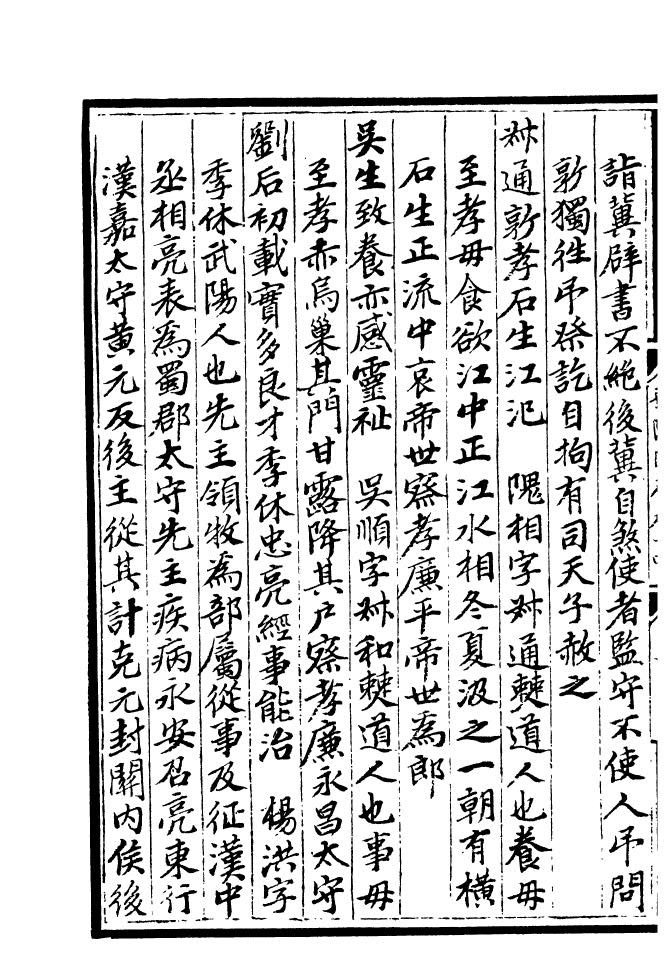 詣冀辟書不絶後冀自煞使者監守不使人弔問
新獨徃弔祭訖自拘有司天子赦之
叔通新孝石生江氾　隗相字叔通僰道人也養毋
至孝毋食欲江中正江水相冬夏汲之一朝有橫
石生正流中哀帝世察孝廉平帝世爲郎
吳生致養亦感靈祉　吳順字叔和僰道人也事毋
至孝赤烏巢其門甘露降其戶察孝廉永昌太守
劉后初載實多良才季休忠亮經事能治　楊洪字
季休武陽人也先主領牧爲部屬從事及征漢中
丞相亮表爲蜀郡太守先主疾病永安召亮東行
漢嘉太守黄元反後主從其計克元封關内侯後